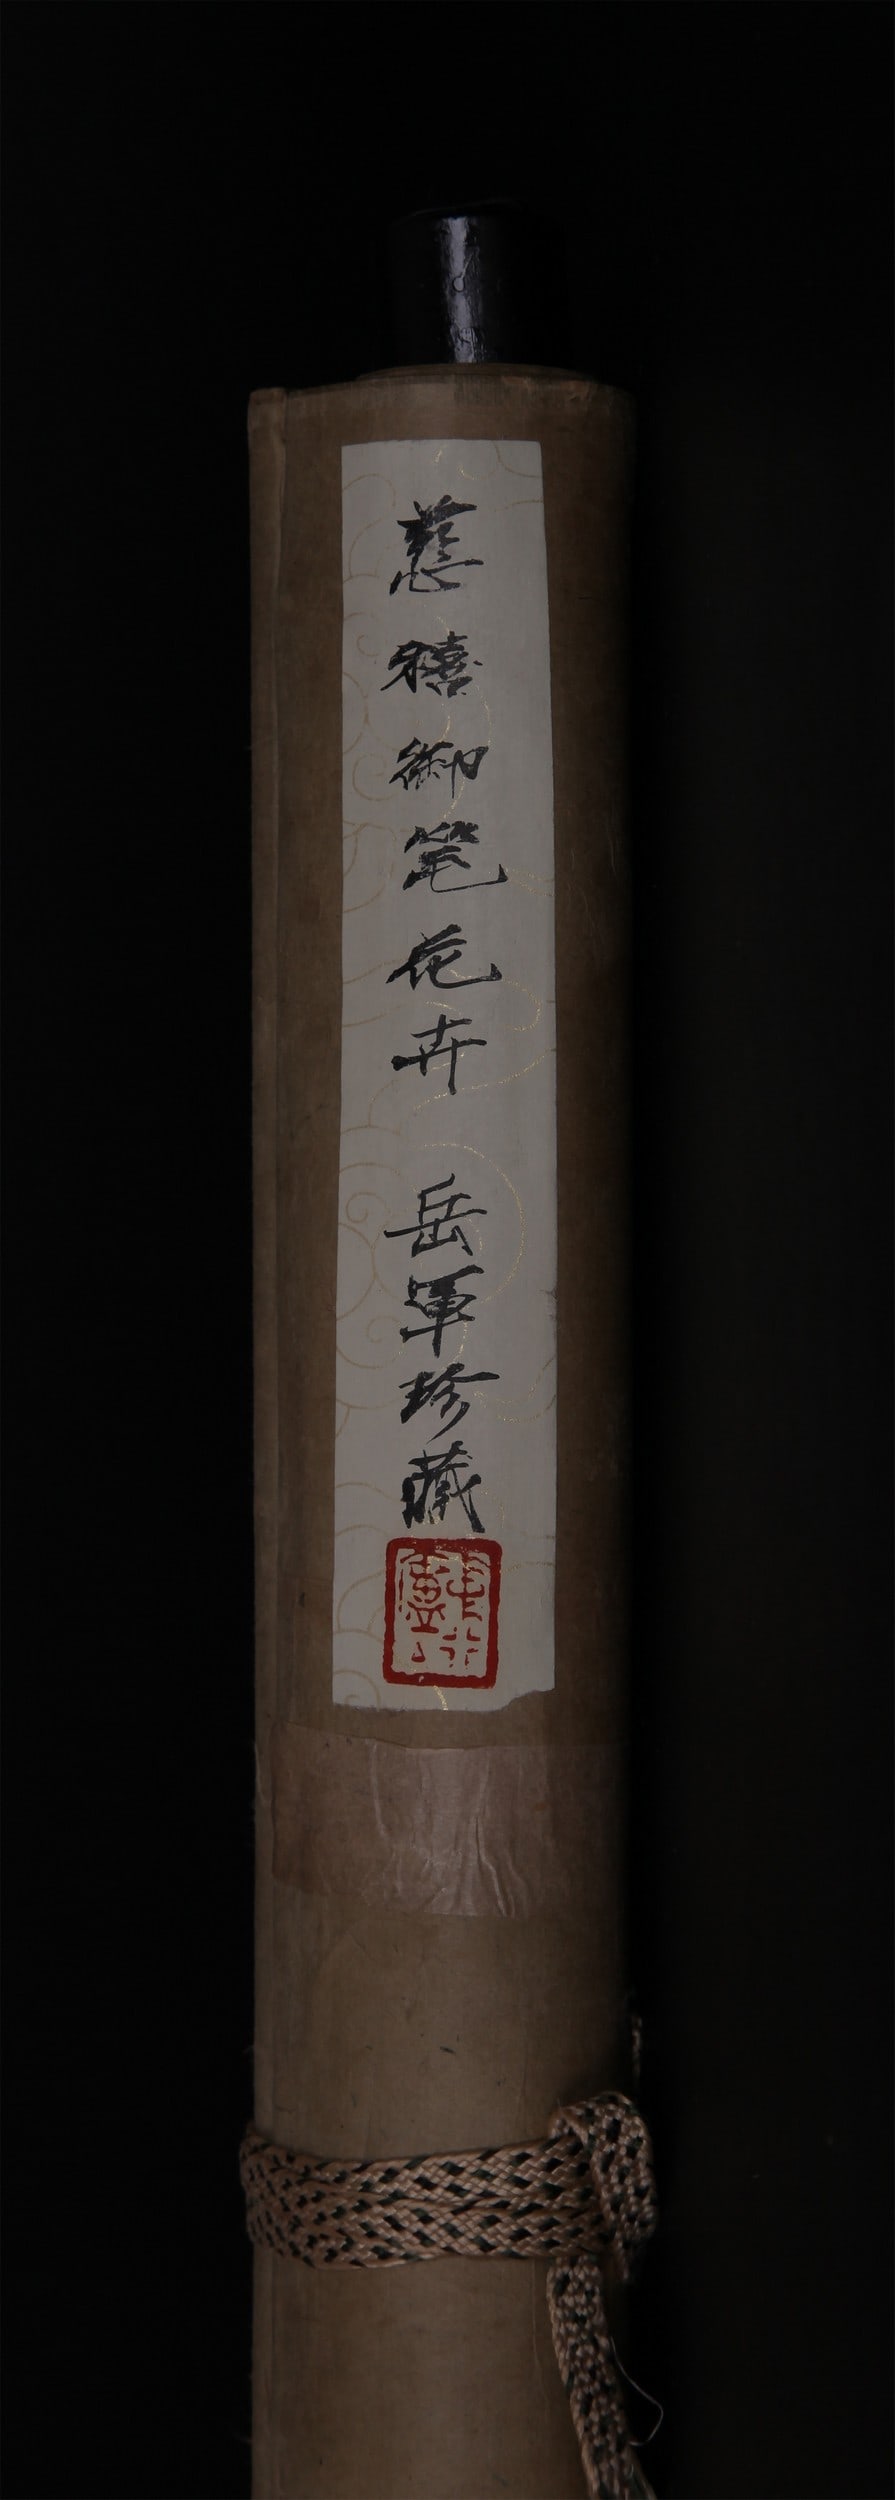 慈禧御笔花卉 岳軍珍藏